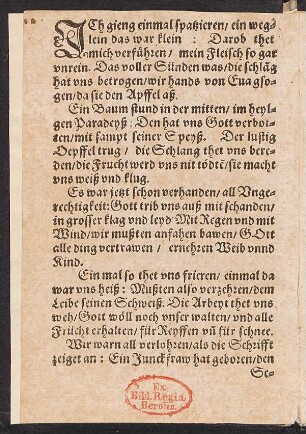 ICh gieng einmal spatzieren/ ein weg-
lein das war klein : Darob thet
mich verführen/ mein Fleisch so gar
vnrein. Das voller Sünden was/ die schläg
hat vns betrogen/ wir hands von Eua gso-
gen/ da sie den Apffel aß.
Ein Baum stund in der mitten/ im heyl-
gen Paradeyß: Den hat vns Gott verbot-
ten/ mit sampt seiner Speyß. Der lustig
Oepffel trug/ die Schlang thet vns bere-
den/ die Frucht werd vns nit tödtē/ sie macht
vns weiß vnd klug.
Es war jetzt schon verhanden/ all Vnge-
rechtigkeit: Gott trib vns auß mit schanden/
in grosser klag vnd leyd Mit Regen vnd mit
Wind/ wir mußten anfahen bawen/ GOtt
alle ding vertrawen / ernehren Weib vnnd
Kind.
Ein mal so thet vns frieren/ einmal da
war vns heiß : Mußten also verzehren/ dem
Leibe seinen Schweiß. Die Arbeyt thet vns
weh/ Gott wöll noch vnser walten/ vnd alle
Frücht erhalten/ für Reyffen vñ für schnee.
Wir warn all verlohren/ als die Schrifft
zeiget an : Ein Junckfraw hat geboren/ den
Se-
Ex
Bibl. Regia
Berolin.